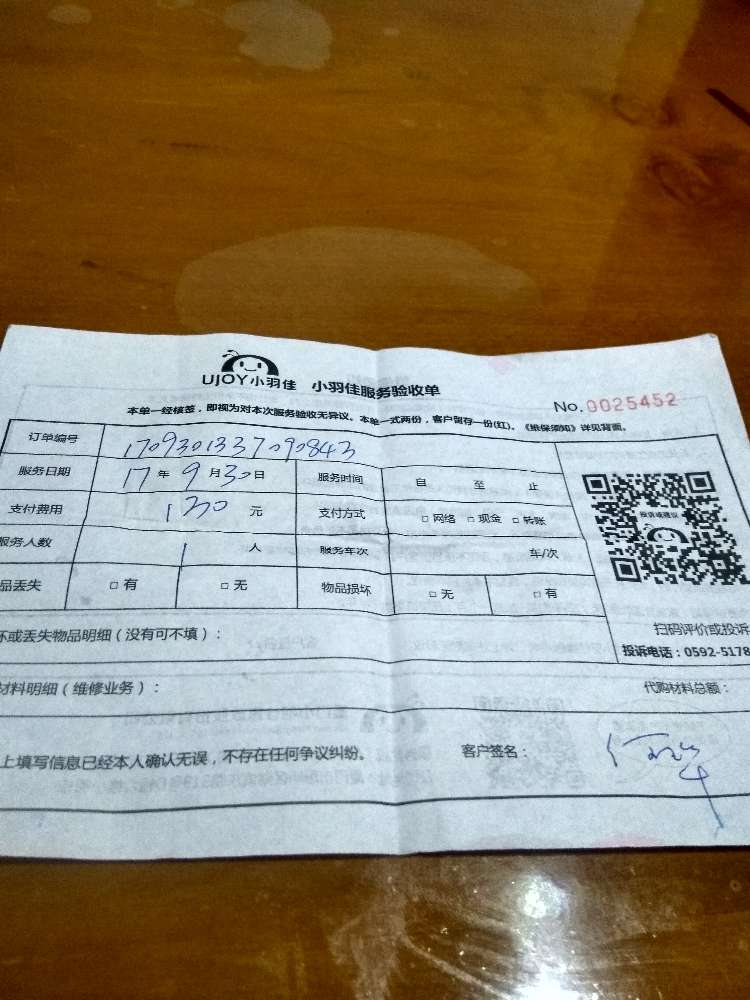 UJOY小羽佳 小羽佳服务验收单
No.0025452
本单一经核签，即视为对本次服务验收无异议。本单一式两份，客户留存一份(红)。《维保须知》详见背面。
订单编号 1709301337090843
服务日期 17 年 9 月 30 日 服务时间 自 至 止
支付费用 130 元 支付方式 □ 网络 □ 现金 □ 转账
服务人数 1 人 服务车次 车/次
品丢失 □ 有 □ 无 物品损坏 □ 无 □ 有
投诉或建议
扫码评价或投诉
投诉电话：0592-5178
坏或丢失物品明细（没有可不填）：
材料明细（维修业务）： 代购材料总额：
上填写信息已经本人确认无误，不存在任何争议纠纷。 客户签名：